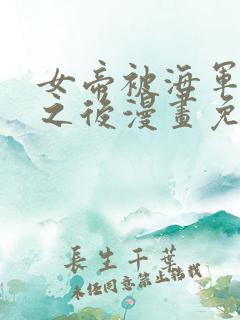 女帝被海軍
之後漫畫免
長生千葉
未經同意禁止轉載